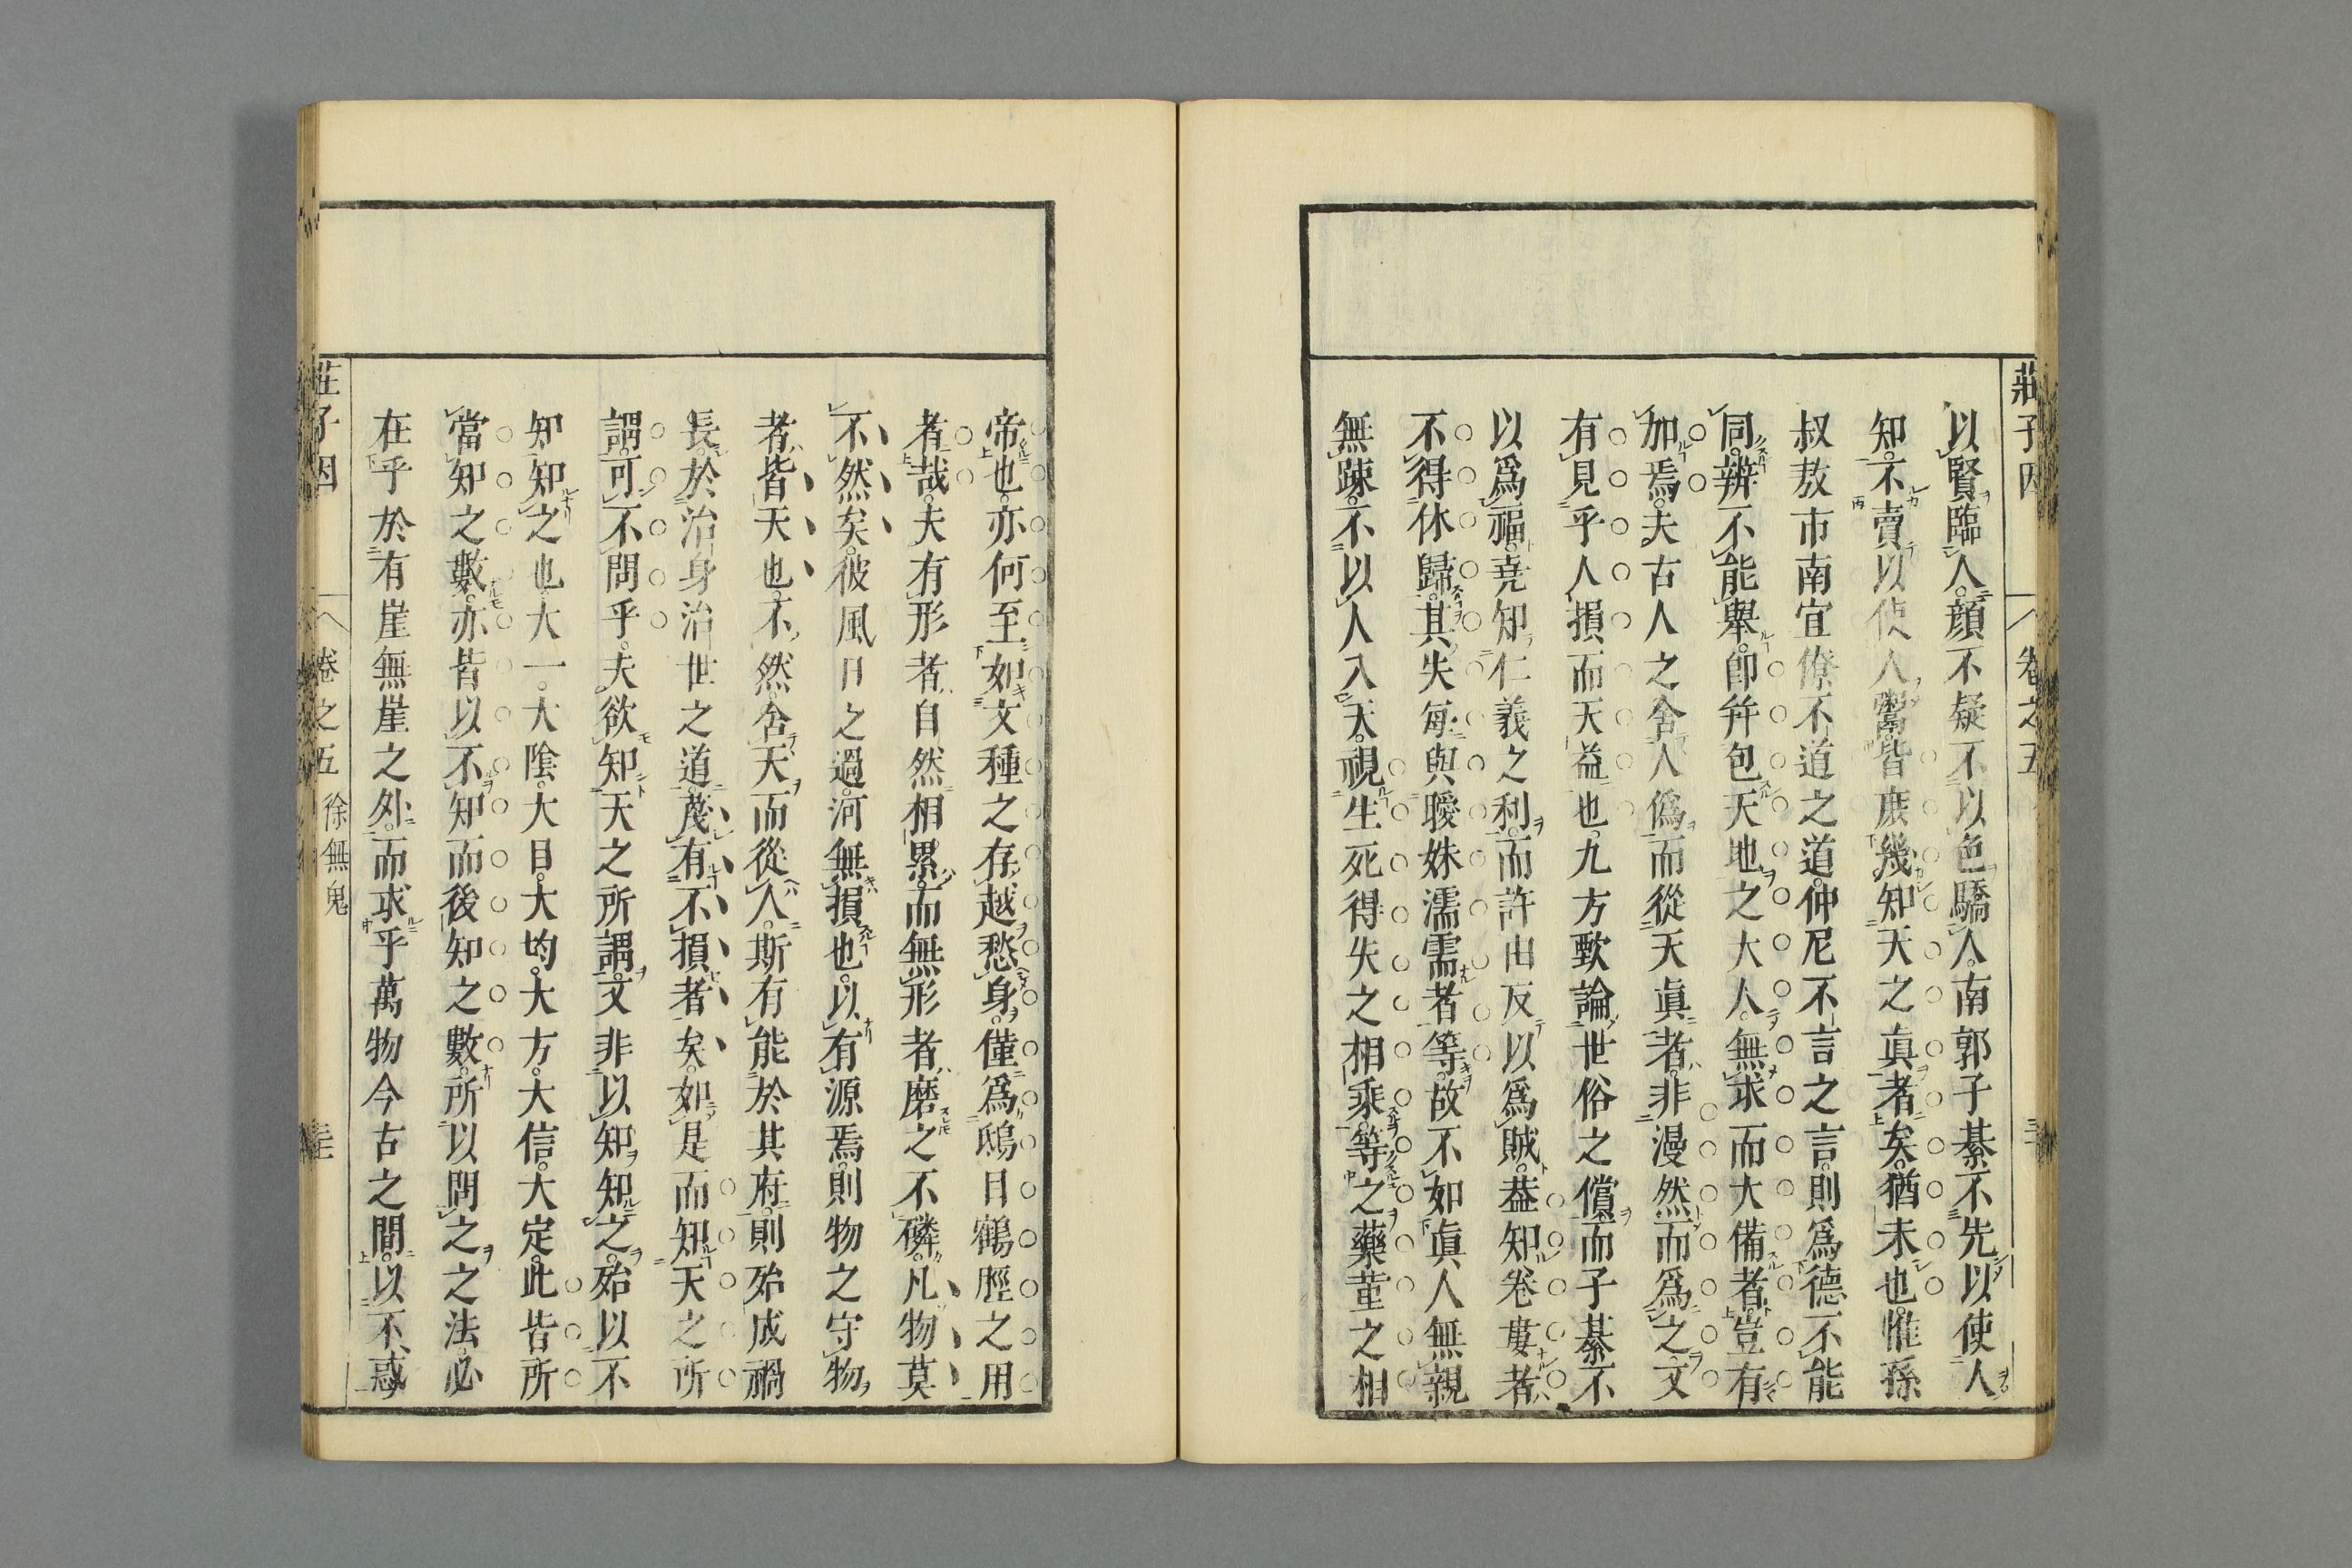 莊子因 卷之五
以賢臨人。顔不疑不以色驕人。南郭子綦不先以使人
知。不賣以使人鬻。皆庶幾知天之真者矣。猶未也。惟孫
叔敖市南宜僚不道之道。仲尼不言之言。則爲德不能
同。辨不能舉。卽幷包天地之大人。無求而大備者。豈有
加焉。夫古人之舍人僞而從天真者。非漫然而爲之。文
有見乎人損而天益也。九方歅論世俗之償。而子綦不
以爲福。堯知仁義之利。而許由反以爲賊。益知卷婁者
不得休歸。其失每與暖姝濡需者等。故不如真人無親
無踈。不以人入天。視生死得失之相乘。等之藥菫之相
帝也。亦何至如文種之存越愁身。僅爲鴟目鶴脛之用
者哉。夫有形者。自然相累。而無形者。磨之不磷。凡物莫
不然矣。彼風日之過河無損也。以有源焉。則物之守物
者。皆天也。不然。舍天而從人。斯有能於其府。則殆成禍
長。於治身治世之道。蔑有不損者矣。如是而知天之所
謂。可不問乎。夫欲知天之所謂。又非以知知之。殆以不
知知之也。大一。大陰。大目。大均。大方。大信。大定。此皆所
當知之數。亦皆以不知而後知之數。所以問之之法。必
在乎於有崖無崖之外。而求乎萬物今古之間。以不惑
莊子因 卷之五 徐無鬼